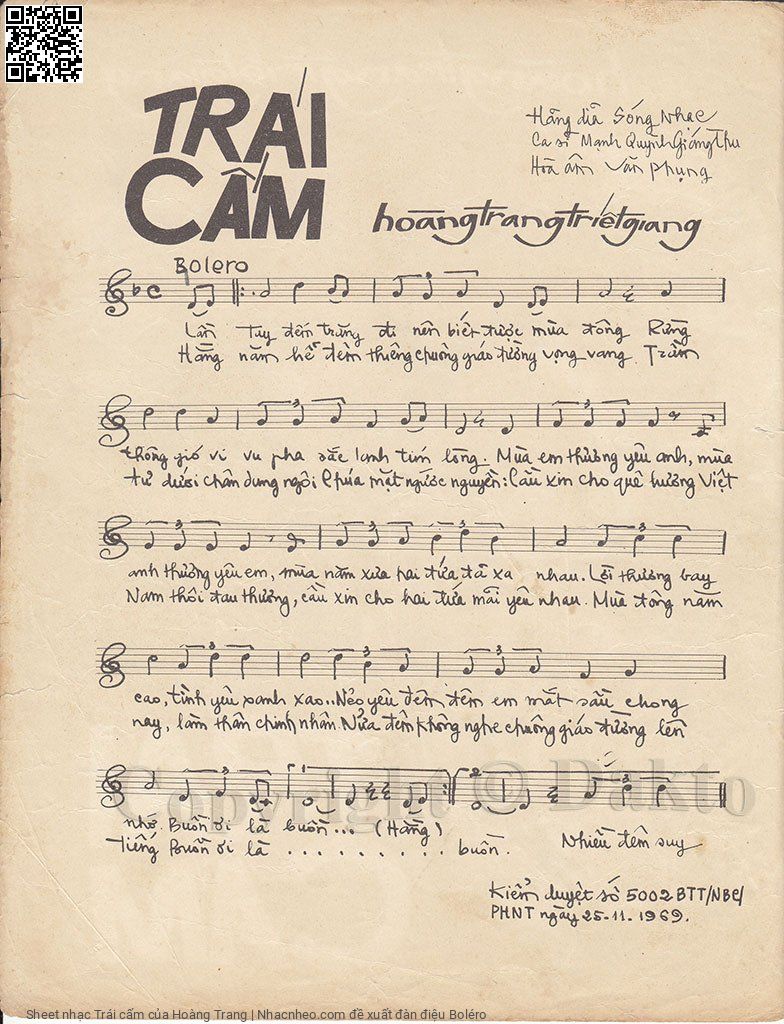 TRÁI
CẤM
Hãng dĩa Sóng Nhạc
Ca sĩ Mạnh Quỳnh Giáng Thu
Hòa âm Văn Phụng
hoàngtrangtriếtgiang
Bolero
Lần Tay đếm trăng đi nên biết được mùa đông Rừng
Hằng năm hễ đêm thiêng chuông giáo đường vọng vang. Trầm
thông gió vi vu pha sắc lạnh tím lòng. Mùa em thương yêu anh, mùa
tư dưới chân dung ngôi Chúa mặt ngước nguyền: Cầu xin cho quê hương Việt
anh thương yêu em, mùa năm xưa hai đứa đã xa nhau. Lời thương bay
Nam thôi đau thương, cầu xin cho hai đứa mãi yêu nhau. Mùa đông năm
cao, tình yêu xanh xao.. Nẻo yêu đêm đêm em mắt sầu chong
nay, làm thân chinh nhân Nửa đêm không nghe chuông giáo đường lên
nhớ. Buồn ơi là buồn... (Hằng)
Tiếng Buồn ơi là . . . . . . . . . . buồn. Nhiều đêm suy
Copyright © Dakto
Kiểm duyệt số 5002 BTT/NBC/
PHNT ngày 25-11-1969.
Sheet nhạc Trái cấm của Hoàng Trang | Nhacnheo.com đề xuất đàn điệu Boléro